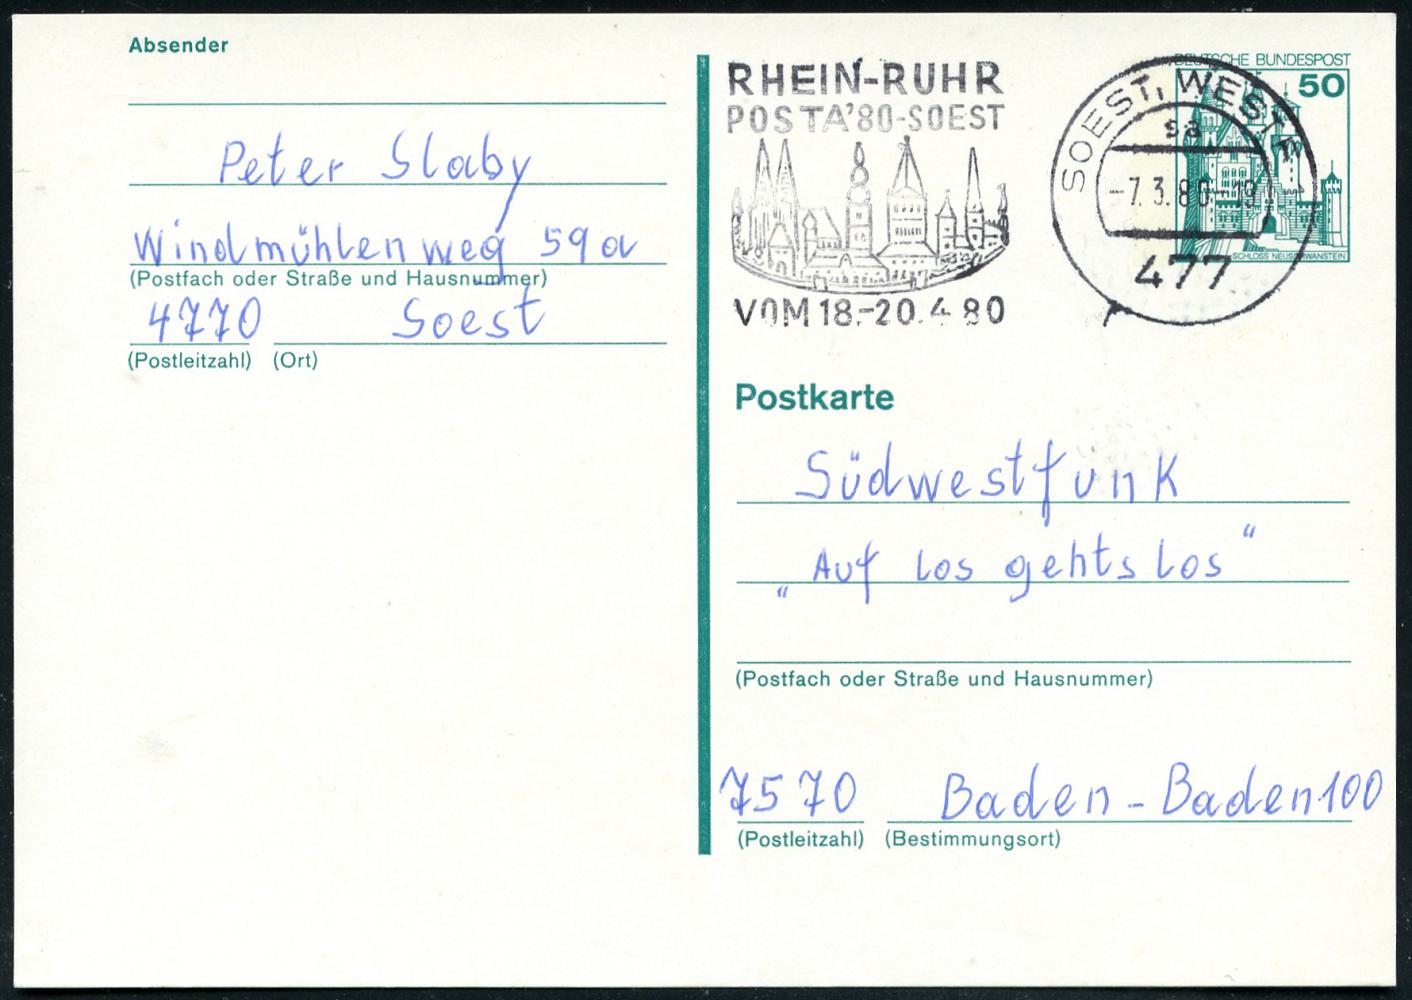 Absender
Peter Slaby
Windmühlenweg 59a
(Postfach oder Straße und Hausnummer)
4770 Soest
(Postleitzahl) (Ort)
RHEIN-RUHR
POSTA'80-SOEST
VOM 18.-20.4.80
SOEST, WESTF
sa
-7.3.80-19
477
DEUTSCHE BUNDESPOST
50
SCHLOSS NEUSCHWANSTEIN
Postkarte
Südwestfunk
„Auf los gehts los“
(Postfach oder Straße und Hausnummer)
7570 Baden-Baden 100
(Postleitzahl) (Bestimmungsort)